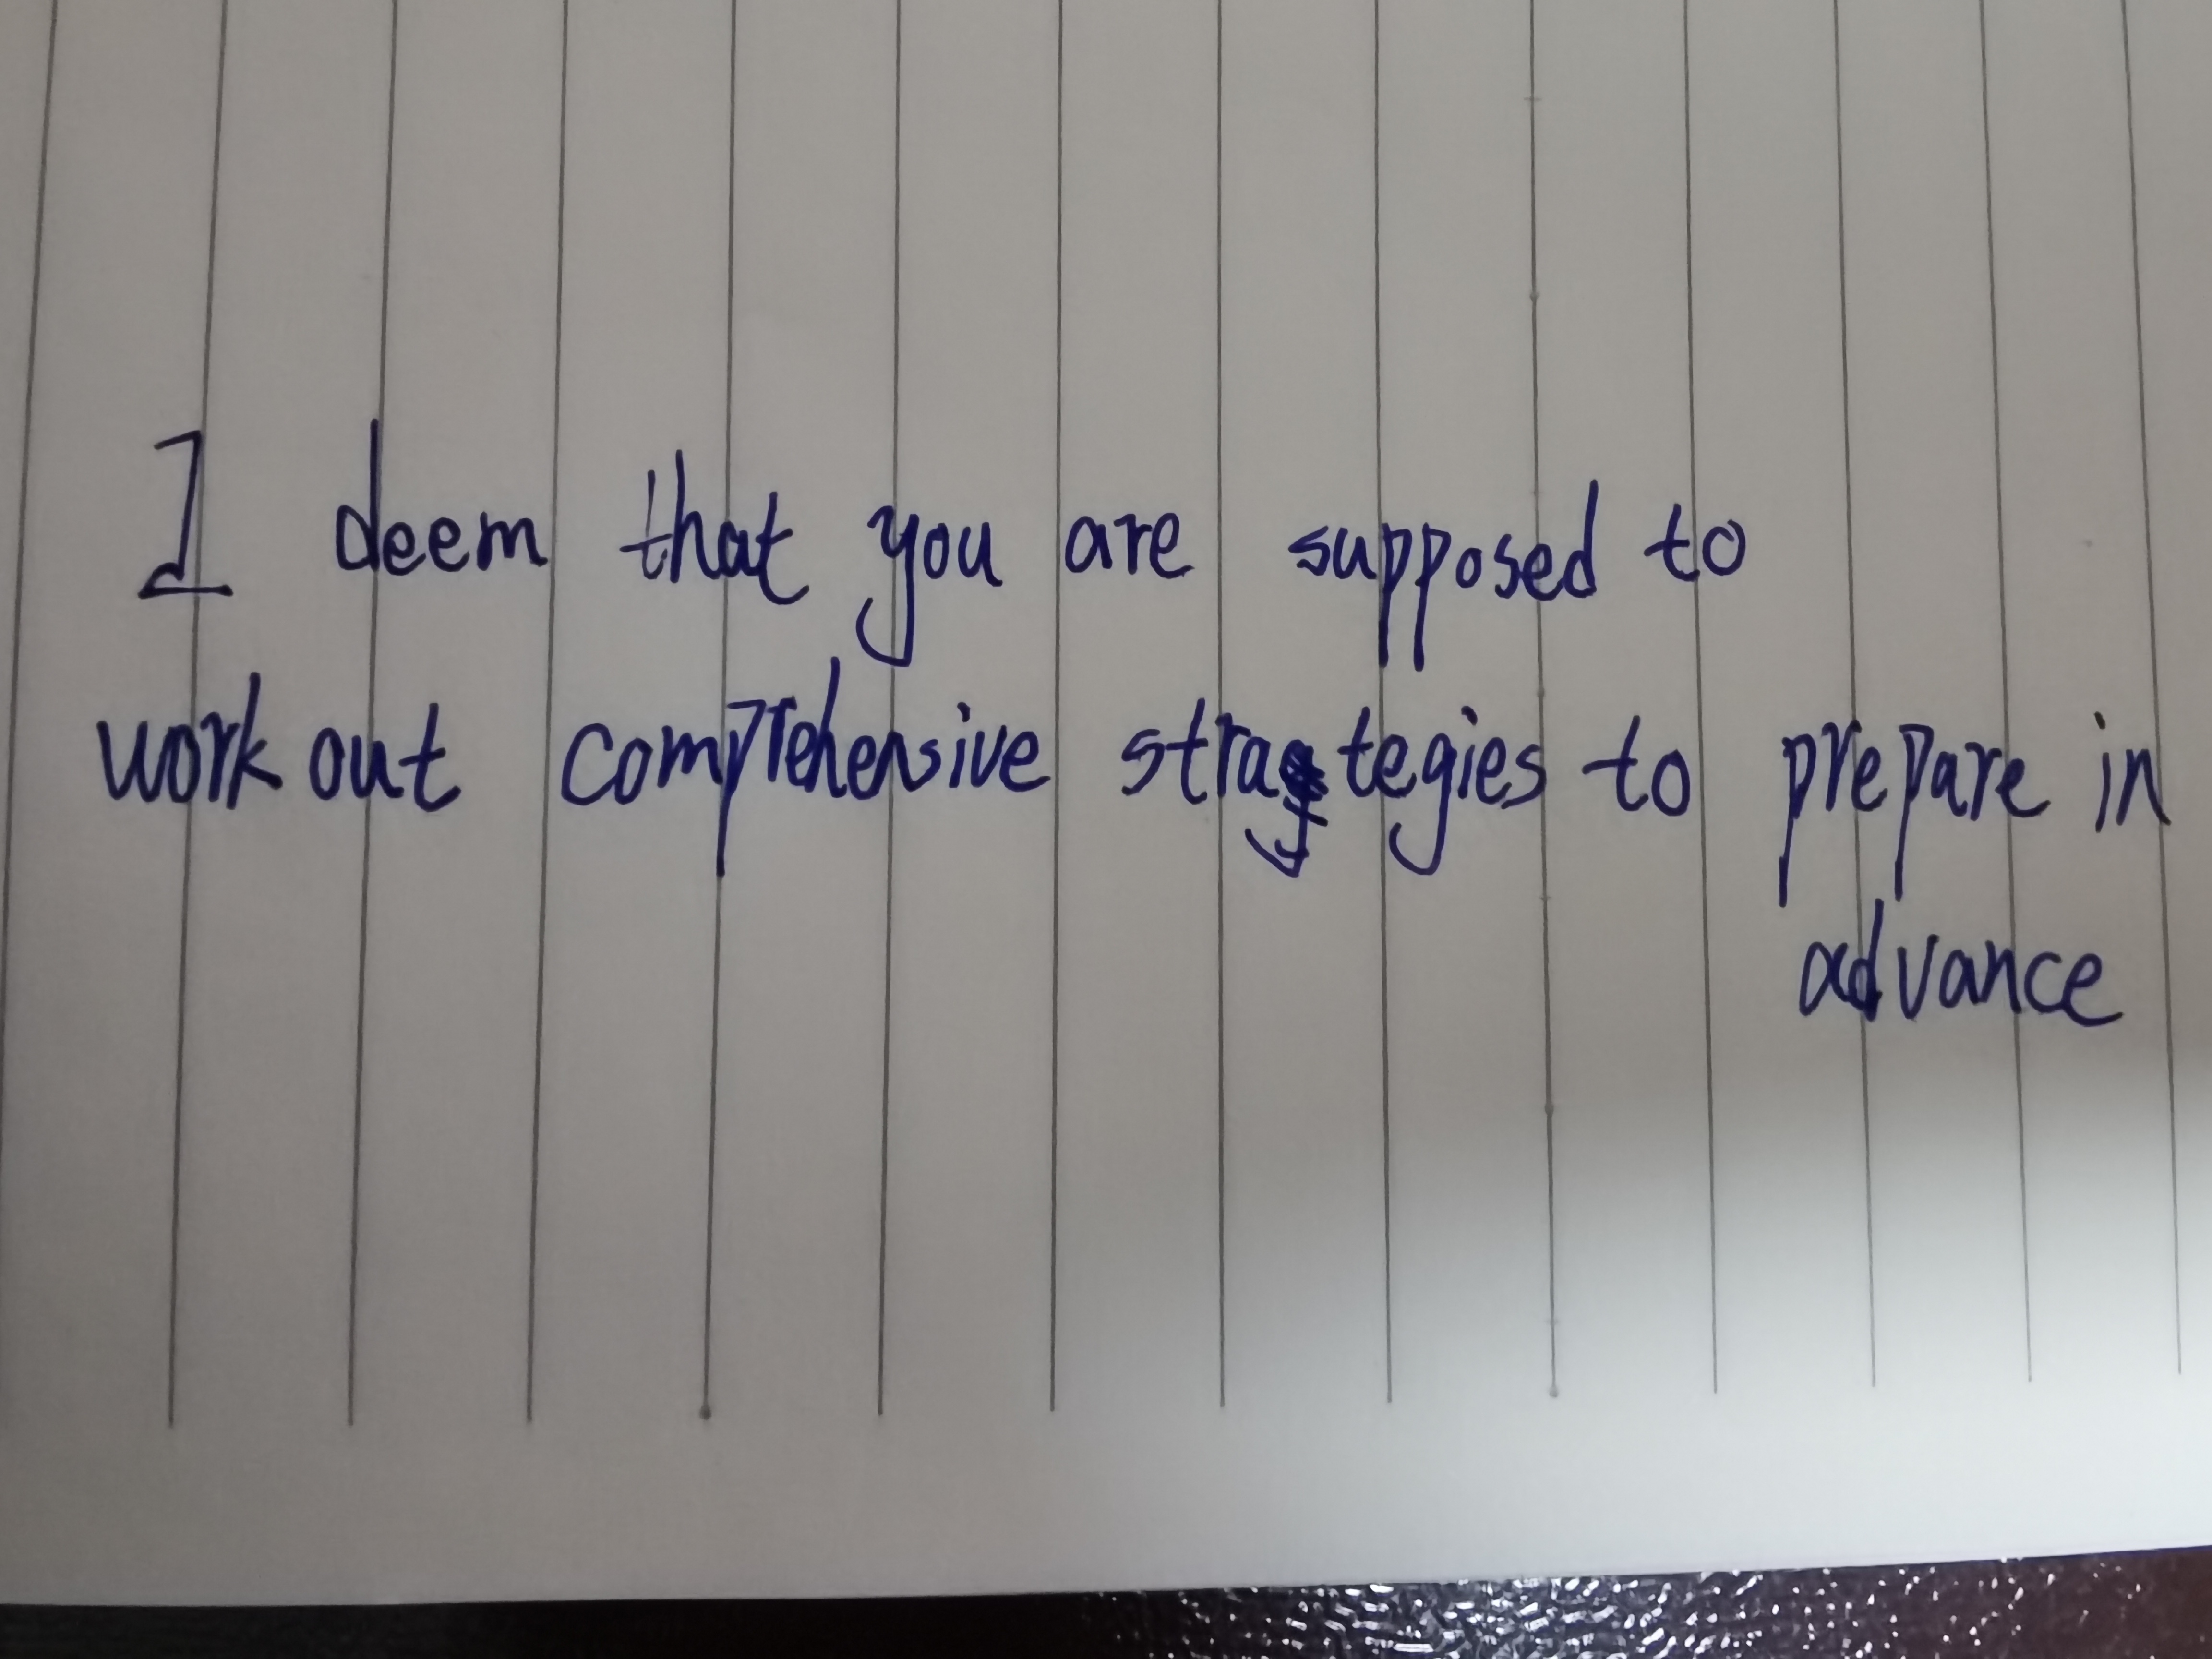 I deem that you are supposed to
work out comprehensive strategies to prepare in
advance